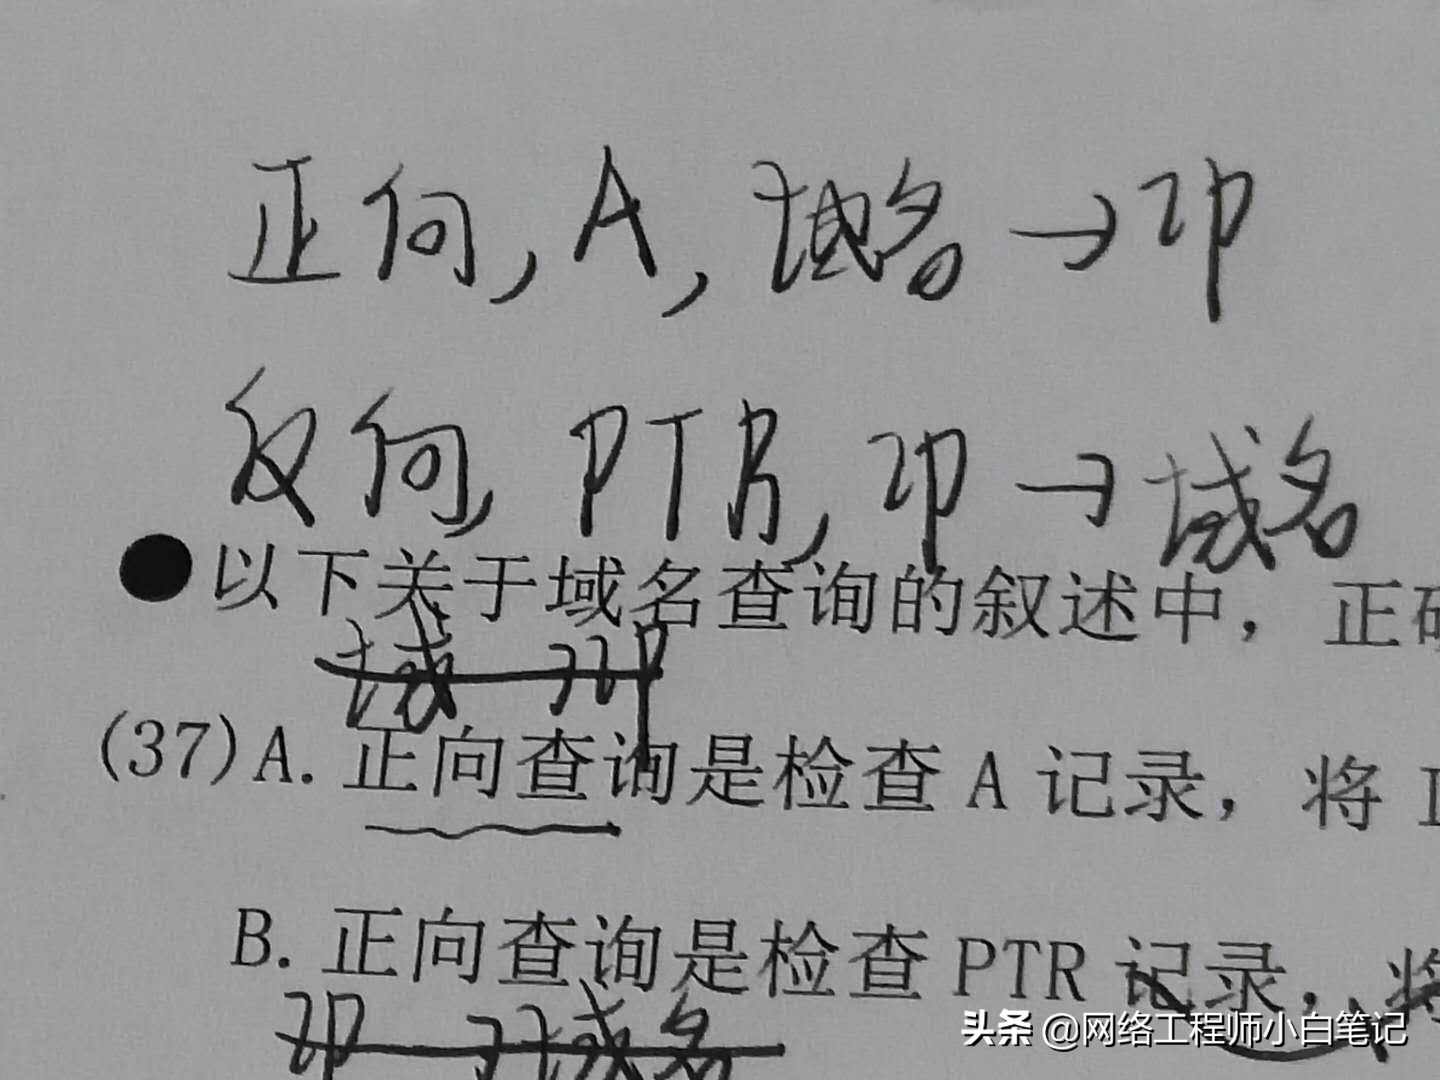 正向，A，域名→IP
反向，PTR，IP→域名
●以下关于域名查询的叙述中，正
域→IP
(37)A. 正向查询是检查 A 记录，将 I
B. 正向查询是检查 PTR 记录，将
IP→域名
头条 @网络工程师小白笔记